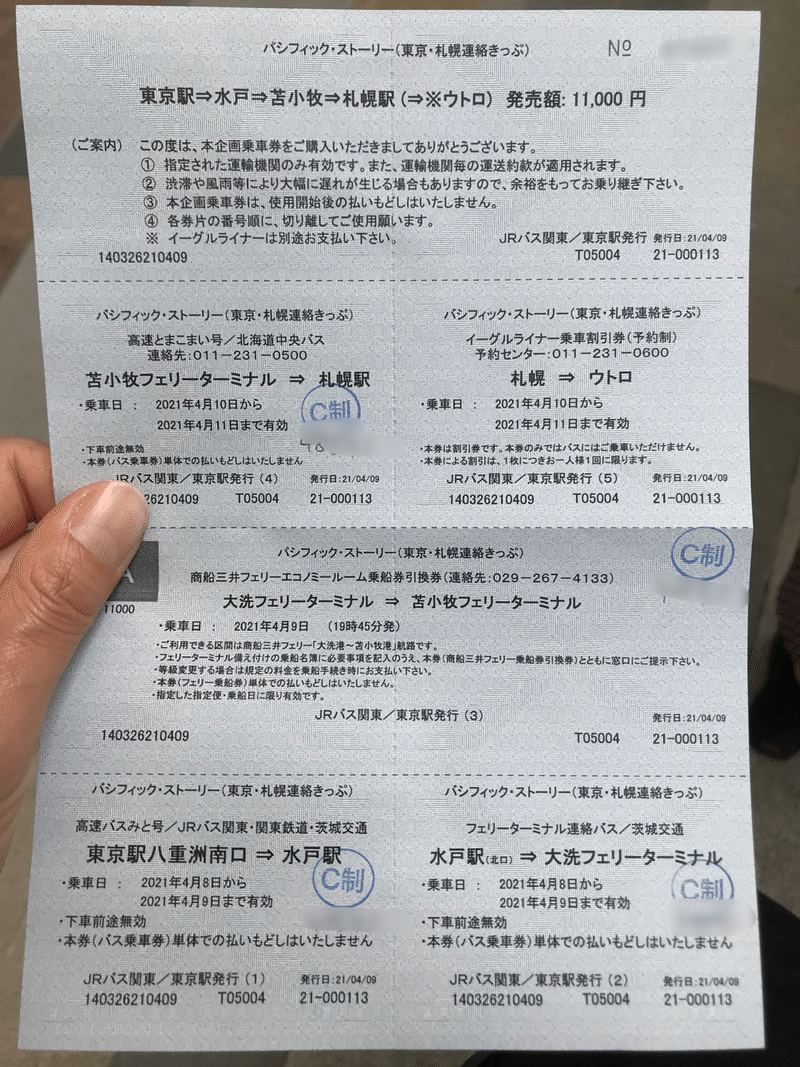 パシフィック・ストーリー（東京・札幌連絡きっぷ）
№
東京駅⇒水戸⇒苫小牧⇒札幌駅（⇒※ウトロ） 発売額: 11,000 円
（ご案内） この度は、本企画乗車券をご購入いただきましてありがとうございます。
① 指定された運輸機関のみ有効です。また、運輸機関毎の運送約款が適用されます。
② 渋滞や風雨等により大幅に遅れが生じる場合もありますので、余裕をもってお乗り継ぎ下さい。
③ 本企画乗車券は、使用開始後の払いもどしはいたしません。
④ 各券片の番号順に、切り離してご使用願います。
※ イーグルライナーは別途お支払い下さい。
JRバス関東／東京駅発行 発行日:21/04/09
140326210409 T05004 21-000113
パシフィック・ストーリー（東京・札幌連絡きっぷ）
高速とまこまい号／北海道中央バス
連絡先:011－231－0500
苫小牧フェリーターミナル ⇒ 札幌駅
・乗車日 ： 2021年4月10日から
2021年4月11日まで有効
C制
・下車前途無効
・本券（バス乗車券）単体での払いもどしはいたしません
JRバス関東／東京駅発行（4） 発行日:21/04/09
26210409 T05004 21-000113
パシフィック・ストーリー（東京・札幌連絡きっぷ）
イーグルライナー乗車割引券（予約制）
予約センター:011－231－0600
札幌 ⇒ ウトロ
・乗車日 ： 2021年4月10日から
2021年4月11日まで有効
・本券は割引券です。本券のみではバスにはご乗車いただけません。
・本券による割引は、1枚につきお一人様1回に限ります。
JRバス関東／東京駅発行（5） 発行日:21/04/09
140326210409 T05004 21-000113
パシフィック・ストーリー（東京・札幌連絡きっぷ）
C制
A
11000
商船三井フェリーエコノミールーム乗船券引換券（連絡先:029－267－4133）
大洗フェリーターミナル ⇒ 苫小牧フェリーターミナル
・乗車日 ： 2021年4月9日 （19時45分発）
・ご利用できる区間は商船三井フェリー「大洗港～苫小牧港」航路です。
・フェリーターミナル備え付けの乗船名簿に必要事項を記入のうえ、本券（商船三井フェリー乗船券引換券）とともに窓口にご提示下さい。
・等級変更する場合は規定の料金を乗船手続き時にお支払い下さい。
・本券（フェリー乗船券）単体での払いもどしはいたしません。
・指定した指定便・乗船日に限り有効です。
JRバス関東／東京駅発行（3） 発行日:21/04/09
140326210409 T05004 21-000113
パシフィック・ストーリー（東京・札幌連絡きっぷ）
高速バスみと号／JRバス関東・関東鉄道・茨城交通
東京駅八重洲南口 ⇒ 水戸駅
・乗車日 ： 2021年4月8日から
2021年4月9日まで有効
C制
・下車前途無効
・本券（バス乗車券）単体での払いもどしはいたしません
JRバス関東／東京駅発行（1） 発行日:21/04/09
140326210409 T05004 21-000113
パシフィック・ストーリー（東京・札幌連絡きっぷ）
フェリーターミナル連絡バス／茨城交通
水戸駅（北口） ⇒ 大洗フェリーターミナル
・乗車日 ： 2021年4月8日から
2021年4月9日まで有効
C制
・下車前途無効
・本券（バス乗車券）単体での払いもどしはいたしません
JRバス関東／東京駅発行（2） 発行日:21/04/09
140326210409 T05004 21-000113